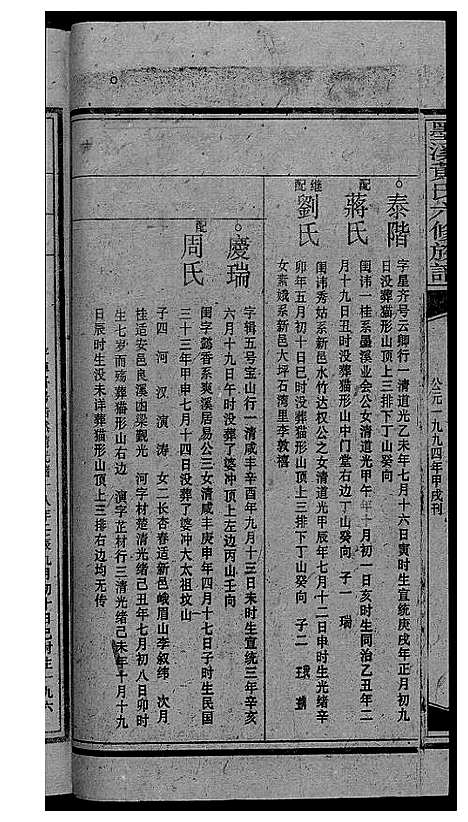 墨溪黄氏六修族谱
公元一九九四年甲戌刊
泰階
字星齐号云卿行一清道光乙未年七月十六日寅时生宣统庚戌年正月初九
日没葬猫形山顶上三排下丁山癸向
配
蔣氏
闺讳一桂系墨溪业会公女清道光甲午年十月初一日亥时生同治乙丑年二
月十九日丑时没葬猫形山中门堂右边丁山癸向 子一 瑞
继配
劉氏
闺讳秀姑系新邑水竹达权公之女清道光甲辰年七月十二日申时生光绪辛
卯年五月初十日巳时没葬猫形山顶上三排下丁山癸向 子二
女素娥系新邑大坪石湾里李敦禧
慶瑞
字辑五号宝山行一清咸丰辛酉年九月十三日未时生宣统三年辛亥
六月十九日午时没葬了婆冲顶上左边丙山壬向
配
周氏
闺字懿香系爽溪居易公三女清咸丰庚申年四月十七日子时生民国
三十三年甲申七月十四日没葬了婆冲大太祖坟山
子四 河 汉 演 涛 女二长杏春适新邑峨眉山李叙纬 次月
桂适安邑良溪凼梁觐光 河字材楚清光绪己丑年七月初八日卯时
生七岁而殇葬猫形山右边 演字芷材行三清光绪己未年十月十九
日辰时生没未详葬猫形山顶上三排右边均无传